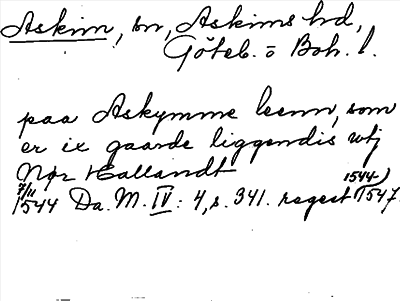 Askim, sn, Askims hd,
Göteb. o Boh. l.
paa Askymme leenn, som
er ix gaarde liggendis wtj
Nør Hallandt
7/11 1544 Da. M. IV: 4, s. 341. regest 1544) 1547.